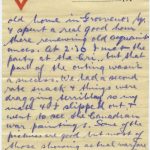 old home in Grosvenor Sq.
& spent a real good hour
there renewing old acquaint
ances. At 2.30 I met the
party at the Cri, but that
part of the outing wasn't
a success. We had a second
rate snack & things were
dragging terribly so my
mate & I slipped out &
went to see the Canadian
war paintings. Some of the
pictures are good but most of
those showing actual warfare